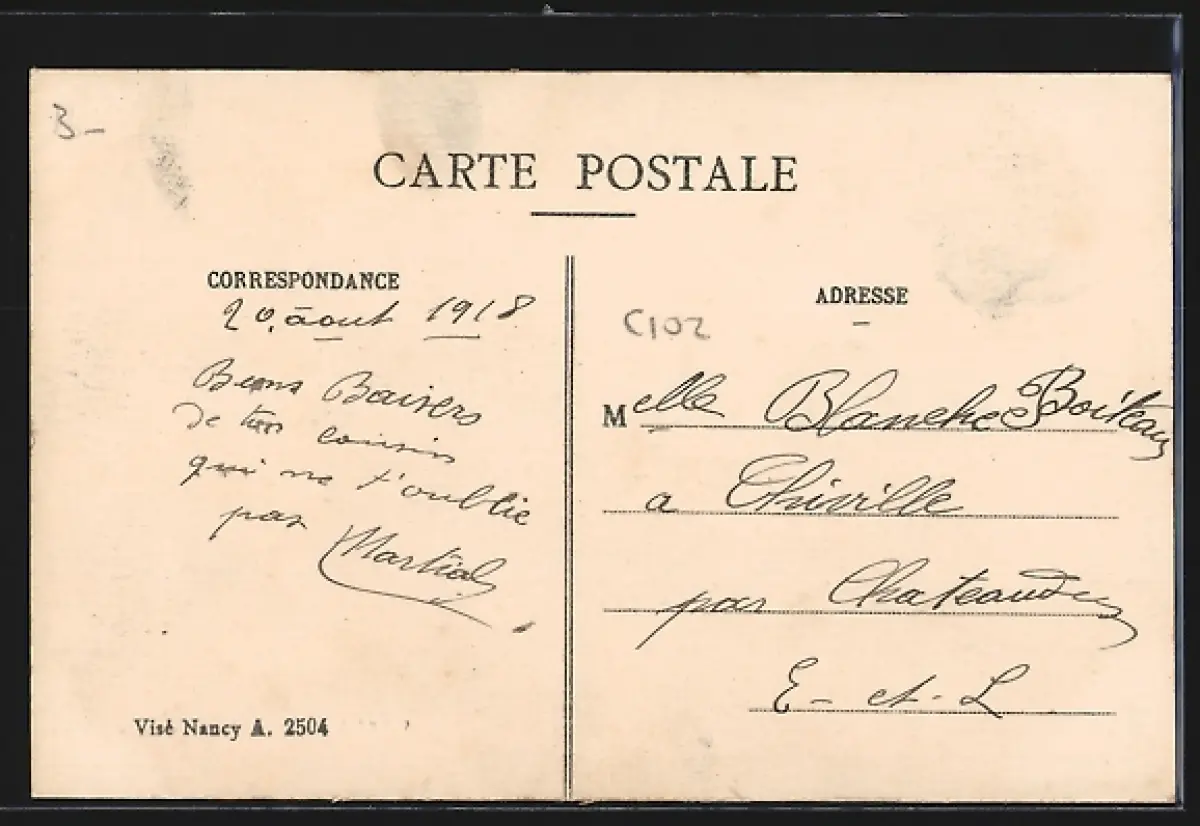 3-
CARTE POSTALE
CORRESPONDANCE
20, août 1918
Bons Baisers
De ton cousin
qui ne t'oublie
pas Martial
Visé Nancy A. 2504
ADRESSE
C102
Melle Blanche Boiteau
a Thiville
par Chateaudun
E- et- L